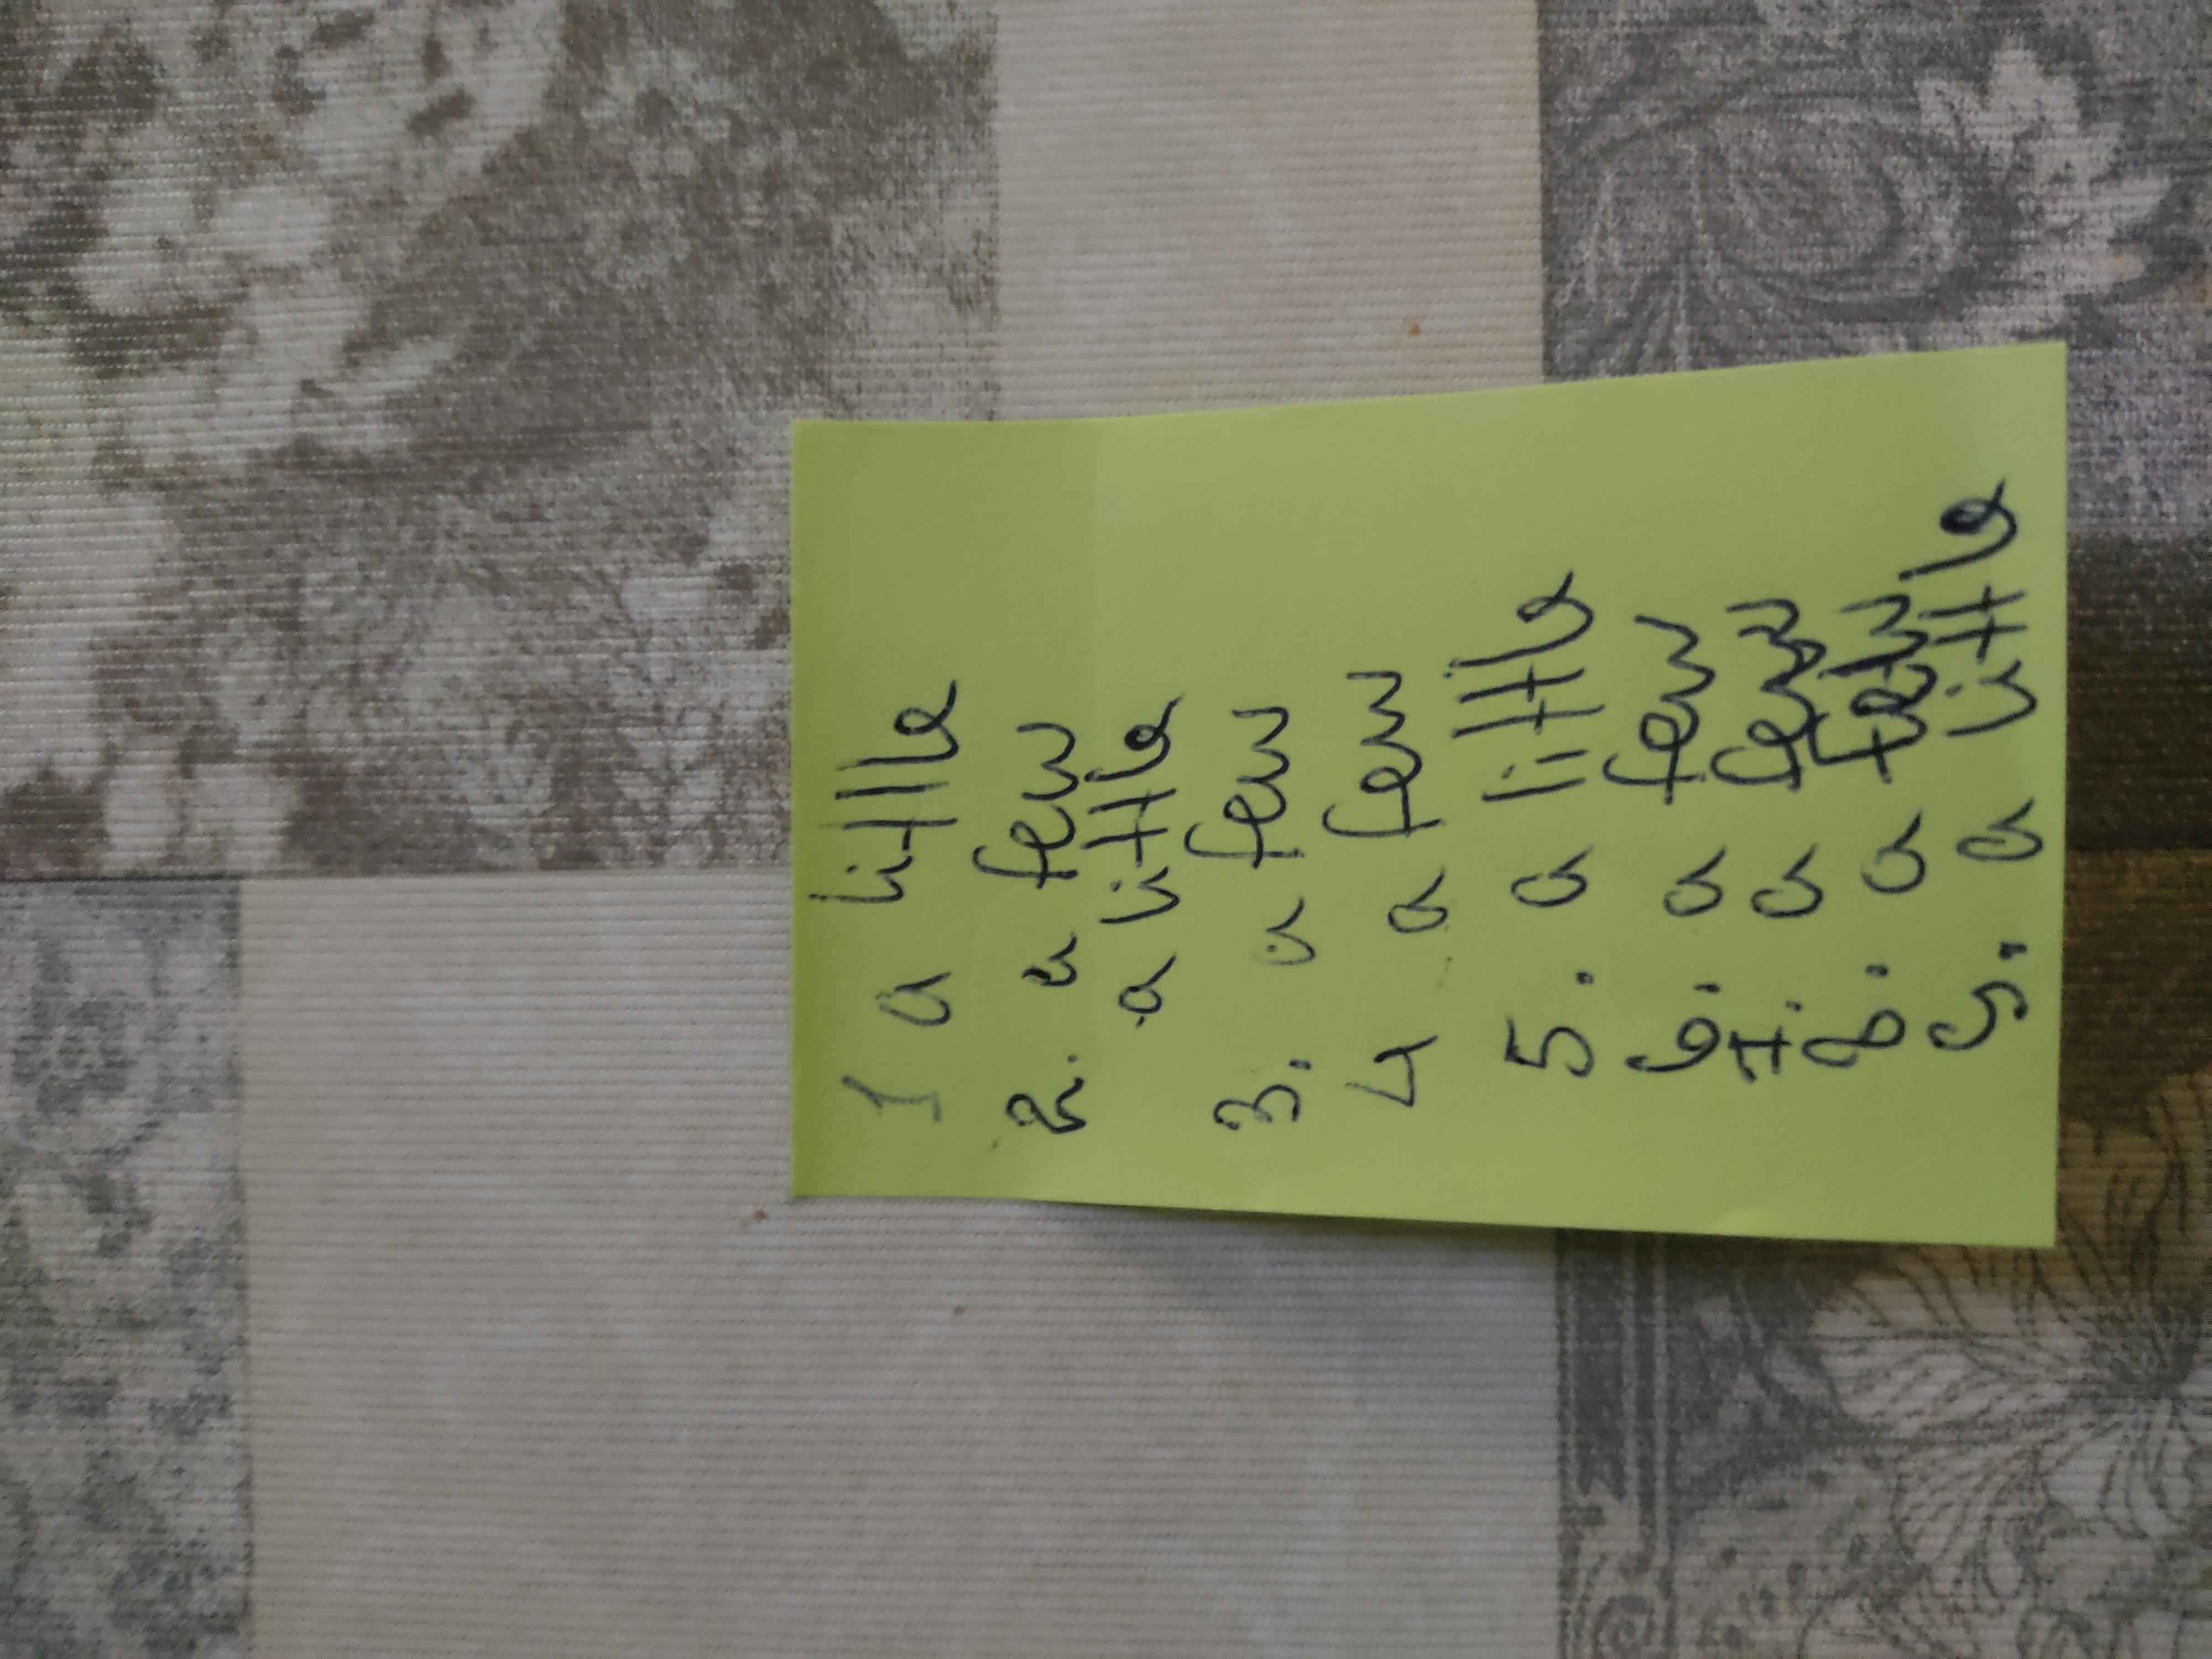 1 a little
2. a few
a little
3. a few
4 a few
5. a little
6. a few
7. a few
8. a few
9. a little